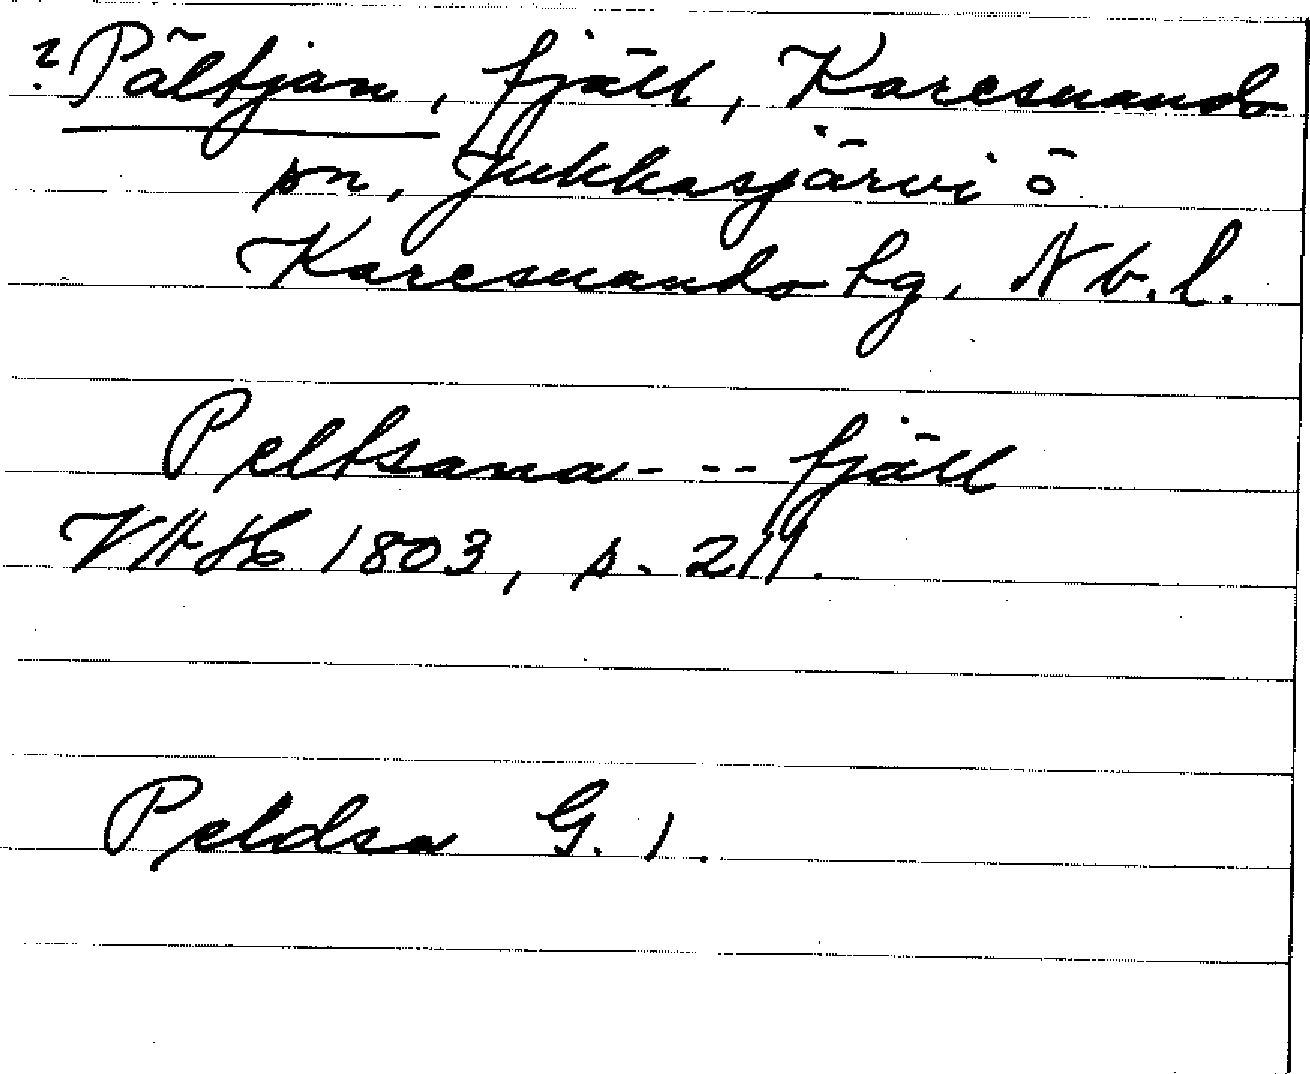 ? Pältjan, fjäll, Karesuando
sn, Jukkasjärvi o
Karesuando tg, Nb.l.
Peltsana--- fjäll
VAH 1803, s. 211.
Peldsa G. 1.